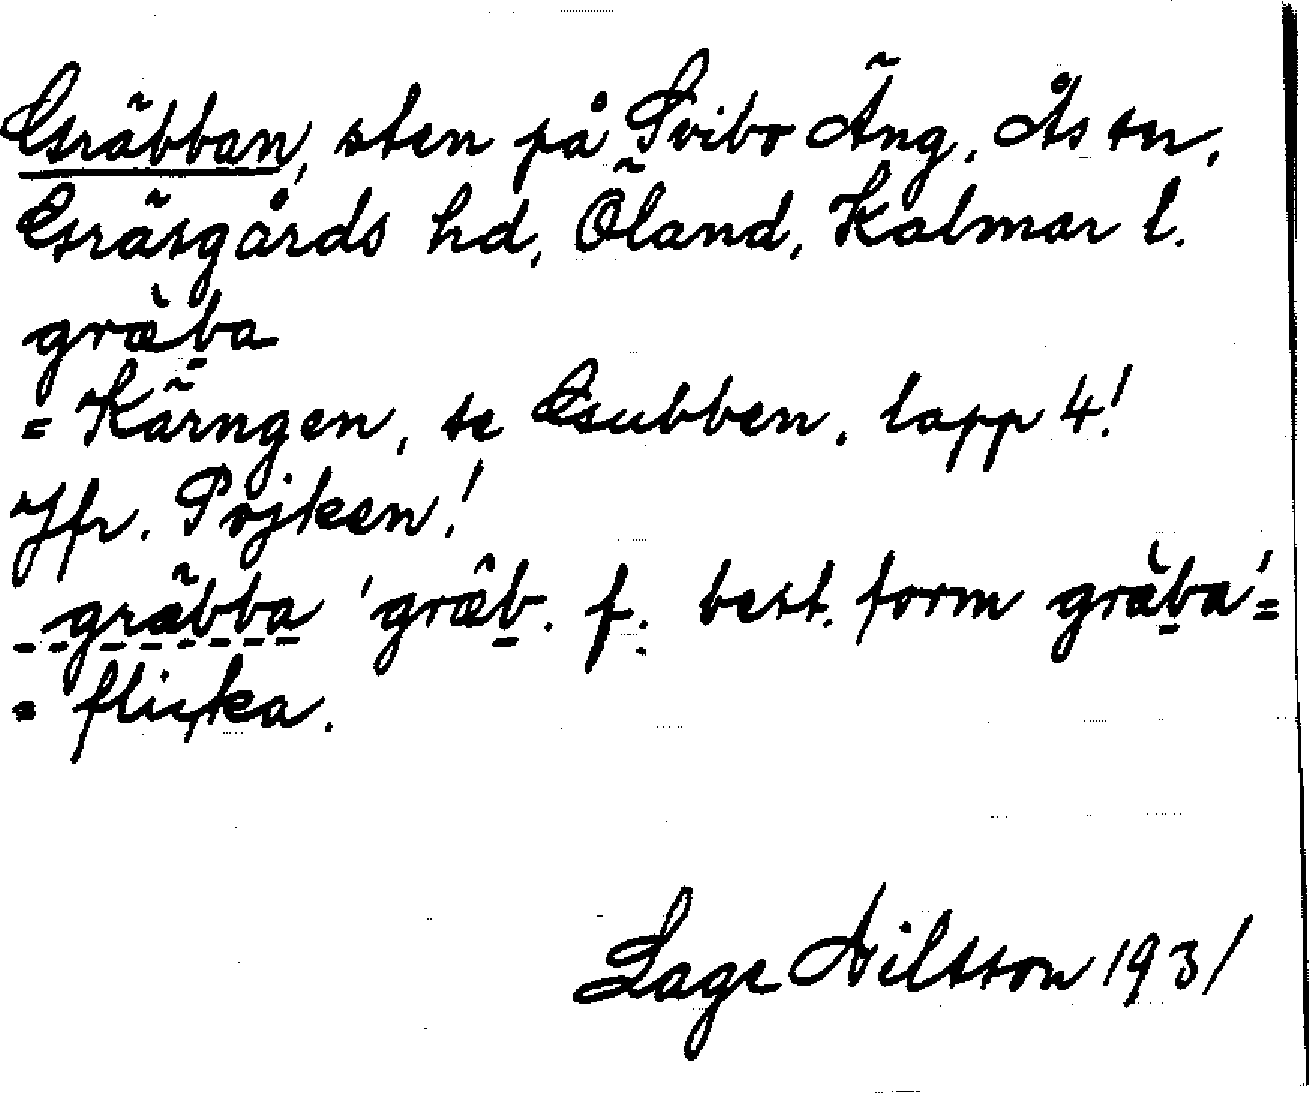 Gräbban, sten på Tvibo Äng, Ås sn,
Gräsgårds hd, Öland, Kalmar l.
græ̀ba
= Kärngen, se Gubben, lapp 4!
Jfr. Pojken!
gräbba 'græ̂b. f. best. form græ̀ba' =
= flicka.
Lage Nilsson 1931